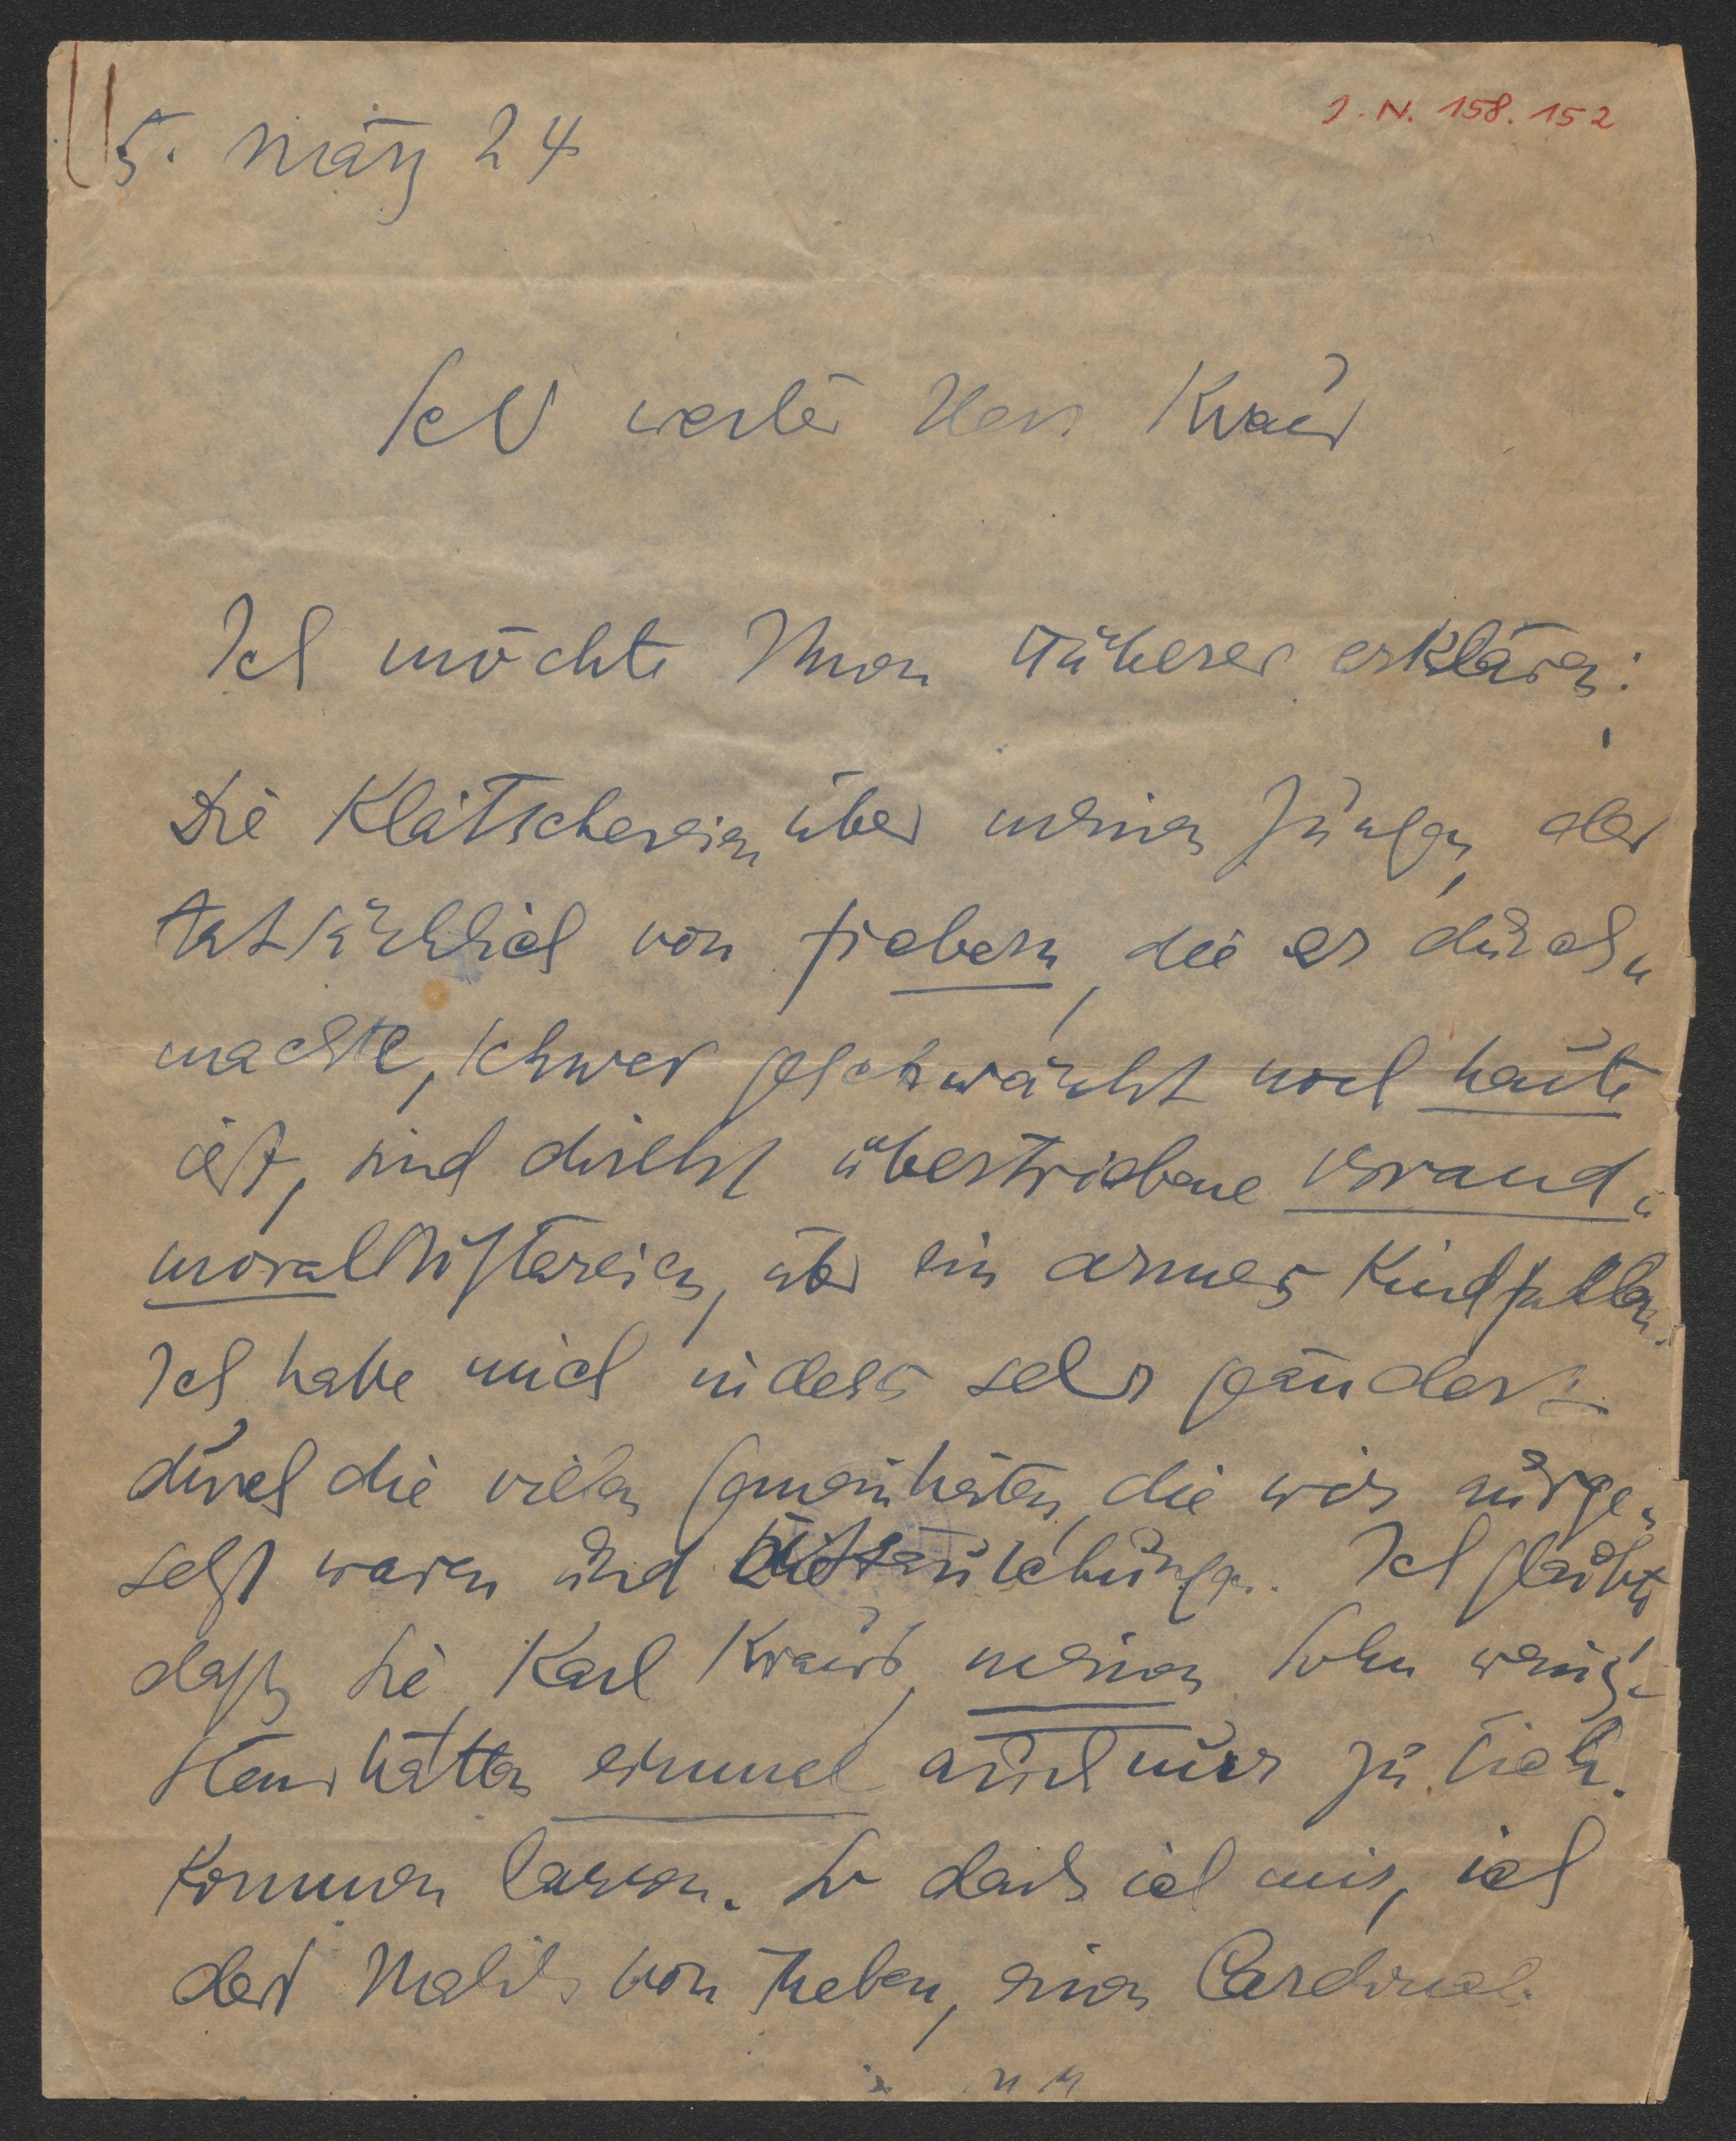 5. März 24
J. N. 158.152
Sehr werter Herr Kraus
Ich möchte Ihnen Näheres erklären:
Die Klatschereien über meinen Jungen, der
tatsächlich von Fiebern, die er durch„
machte, schwer geschwächt noch heute
ist, sind direkt übertriebene
moral über ein armes Kind
Ich habe mich indess sehr geändert
durch die vielen Gemeinheiten, die wir ausge„
setzt waren und Enttäuschungen. Ich glaubte
daß Sie, Karl Kraus, meinen Sohn wenig„
stens hätten einmal auch nur zu sich
kommen lassen. So dacht ich mir, ich
der Malik von Theben, einen Cardinal.